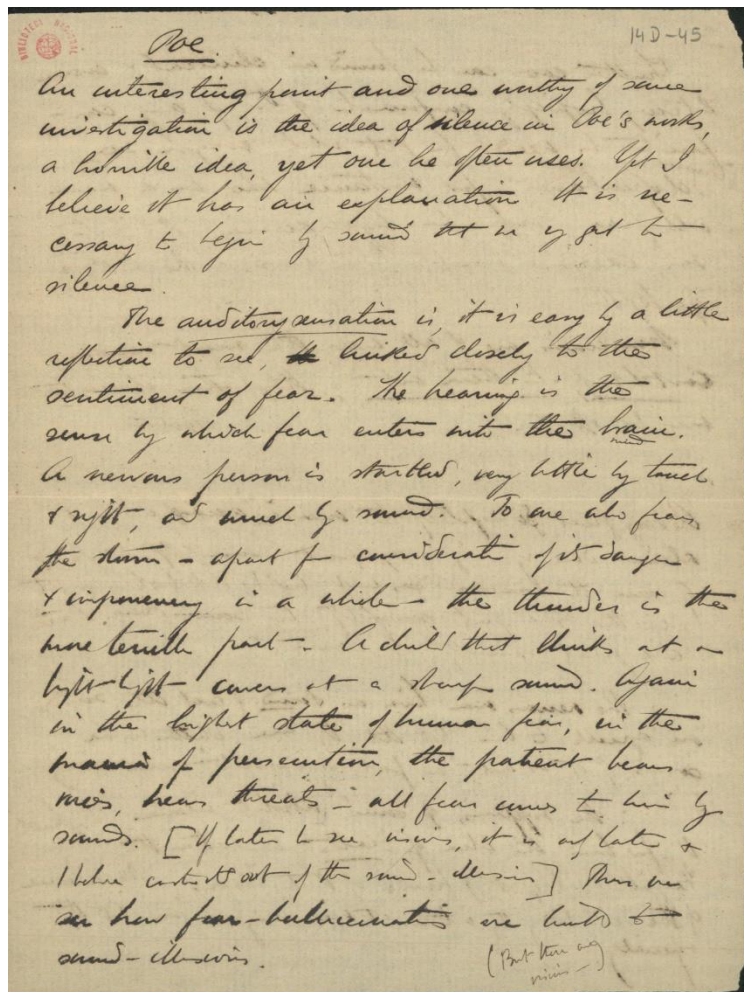 BIBLIOTECA NACIONAL
14D-45
Poe.
An interesting point and one worthy of some
investigation is the idea of silence in Poe's works,
a horrible idea, yet one he often uses. Yet I
believe it has an explanation. It is ne-
cessary to begin by sound that we may get to
silence.
The auditory sensation is, it is easy by a little
reflection to see, linked closely to the
sentiment of fear. The hearing is the
sense by which fear enters into the brain.
mind
A nervous person is startled, very little by touch
& sight, and much by sound. To one who fears
the storm - apart from consideration of its danger
& in a whole - the thunder is the
more terrible part. A child that blinks at a
bright light cowers at a sharp sound. Again
in the highest state of human fear, in the
mania of persecution, the patient hears
voices, hears threats - all fear comes to him by
sounds. [If later he see visions, it is only later &
I believe out of the sound-illusions] Thus we
see how fear-hallucinations are
sound-illusions.
(But there are
visions -)